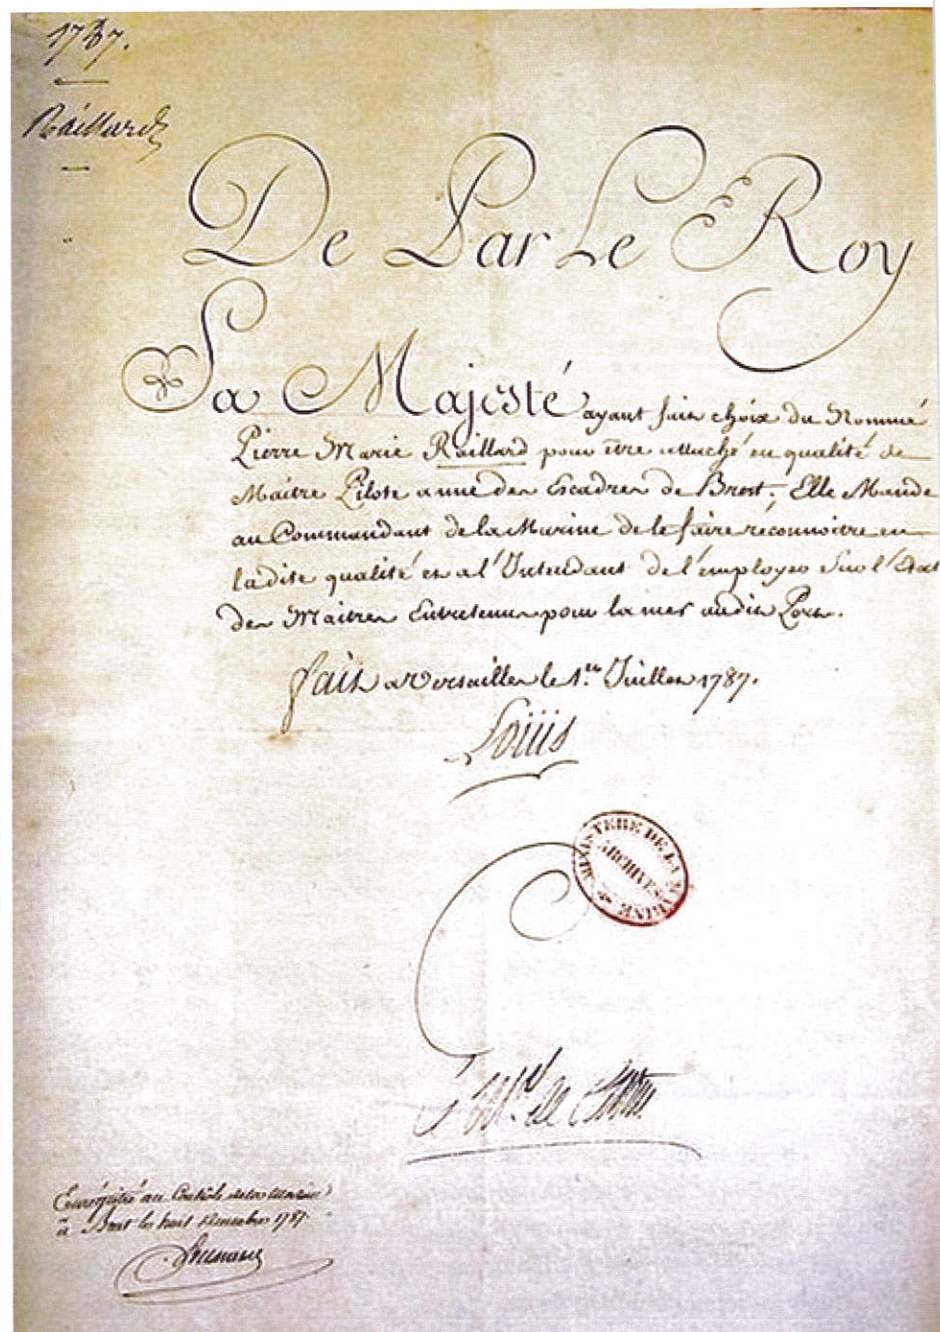 1787.
Raillard
De Par Le Roy
Sa Majesté ayant fait choix du Nommé
Pierre Marie Raillard pour être attaché en qualité de
Maitre Pilote a une des Escadres de Brest, Elle Mande
au Commandant de la Marine de le faire réconnoitre en
ladite qualité et a l'Intendant de l'employer sur l'Etat
des Maitres Entretenus pour la mer audit Port.
fait a Versailles le 1.er Juillet 1787.
Loüis
MINISTERE DE LA MARINE
ARCHIVES
Enregistré au Contrôle de la Marine
a Brest le huit 1787.